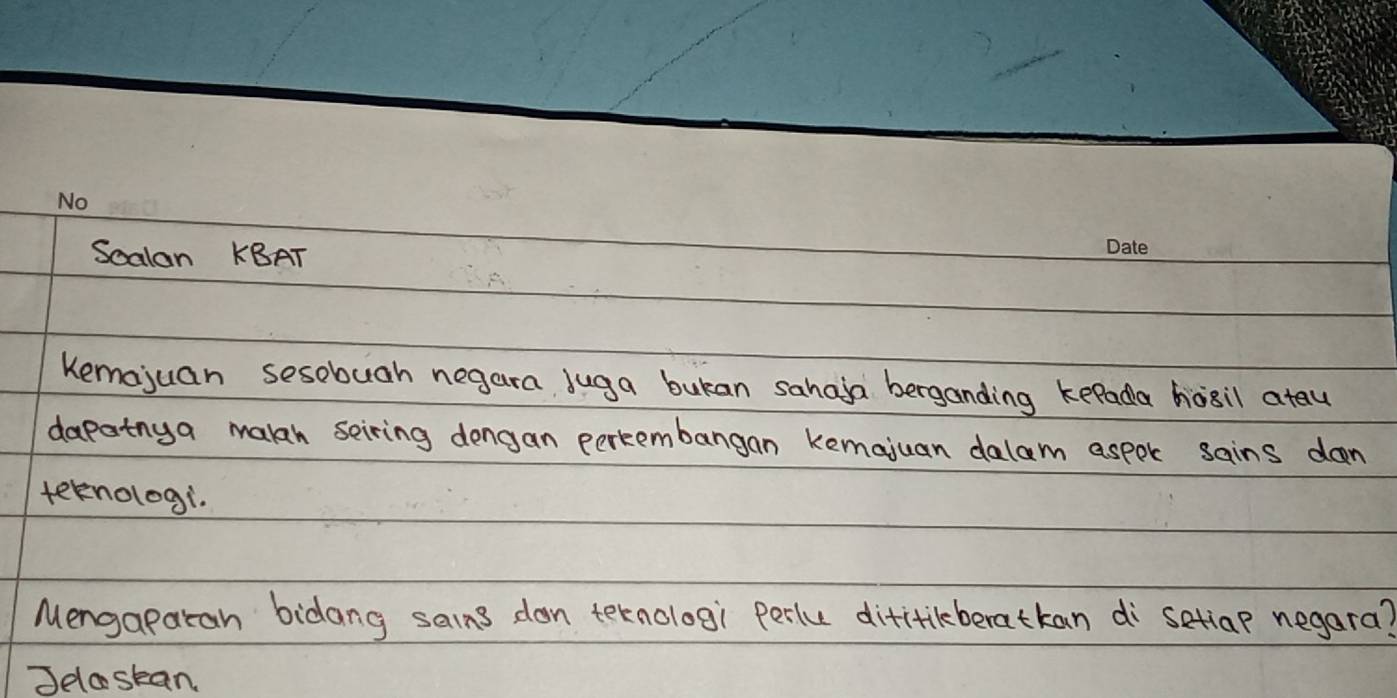 No
Date
Soalan KBAT
Kemajuan sesebuah negara juga bukan sahaja berganding kepada hasil atau
dapatnya malah seiring dengan perkembangan kemajuan dalam aspek sains dan
teknologi.
Mengapakah bidang sains dan teknologi perlu dititikberatkan di setiap negara?
Jelaskan.